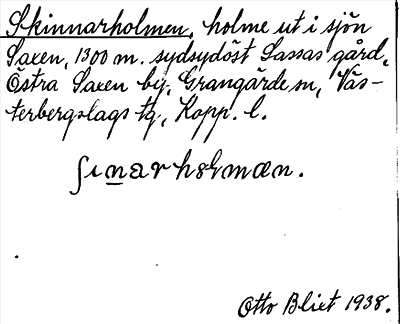 Skinnarholmen, holme ut i sjön
Saxen, 1300 m. sydsydöst Lassas gård,
Östra Saxen by, Grangärde sn, Väs-
terbergslags tg, Kopp. l.
ʃınarhɷlmæn.
Otto Blixt 1938.